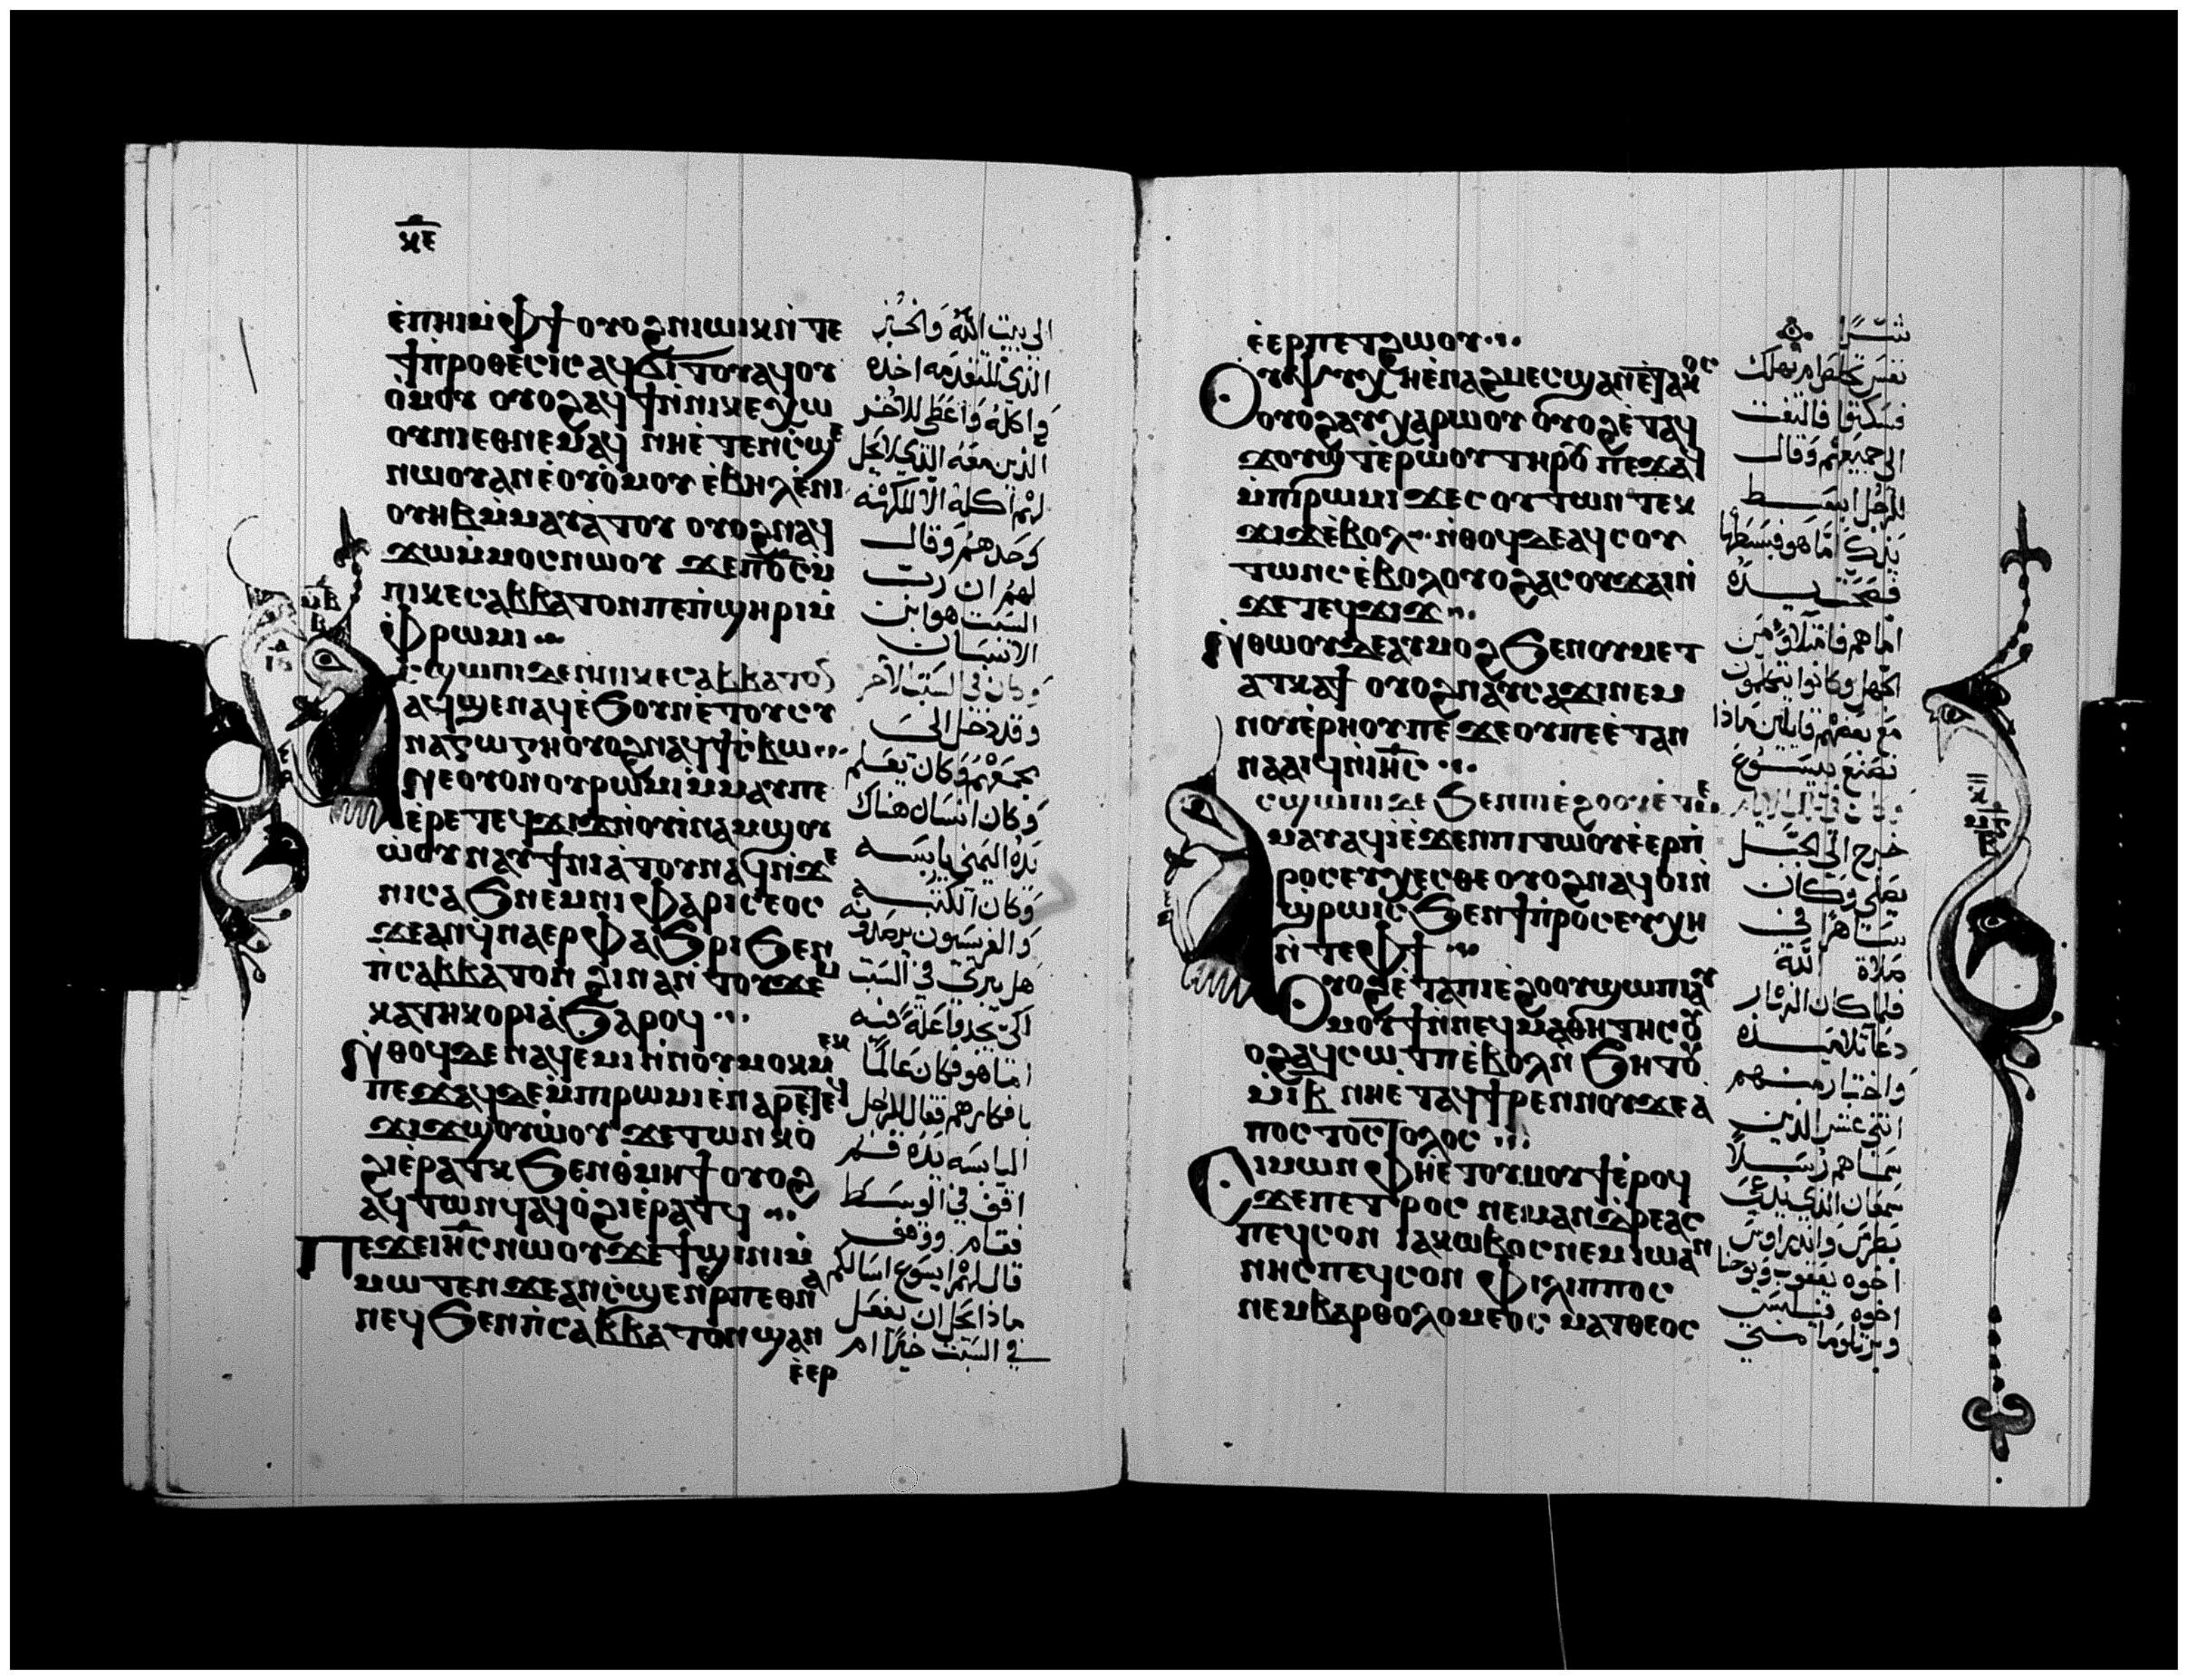 ⲕⲉ
ⲉ̀ⲡⲏⲓⲙ̀ⲫϯ ⲟⲩⲟϩⲛⲓⲱⲓⲕⲛ̀ⲧⲉ
ϯⲡⲣⲟⲑⲉⲥⲓⲥ ⲁϥϭⲓⲧⲟⲩⲁϥⲟⲩ
ⲟ̀ⲙⲟⲩ ⲟⲩⲟϩⲁϥϯⲛ̀ⲛⲓⲕⲉⲭⲱ
ⲟⲩⲛⲓⲉⲑⲛⲉⲙⲁϥ ⲛⲏⲉ̀ⲧⲉⲛⲥ̀ϣⲉ
ⲛⲱⲟⲩⲁⲛⲉ̀ⲟⲩⲟ̀ⲙⲟⲩ ⲉ̀ⲃⲏⲗⲉ̀ⲛⲓ
ⲟⲩⲏⲃⲙ̀ⲙⲁⲩⲁ̀ⲧⲟⲩ ⲟⲩⲟϩⲛⲁϥ
ϫⲱⲙ̀ⲙⲟⲥⲛⲱⲟⲩ ϫⲉⲡⲟ̅ⲥ̅ⲙ̀
ⲡⲓⲕⲉⲥⲁⲃⲃⲁⲧⲟⲛⲡⲉⲡ̀ϣⲏⲣⲓⲙ̀
ⲫⲣⲱⲙⲓ
ⲥϣⲱⲡⲓⲇⲉⲛ̀ⲡⲓⲕⲉⲥⲁⲃⲃⲁⲧⲟ
ⲁϥϣⲉⲛⲁϥⲉ̀ϧⲟⲩⲛⲉ̀ⲧⲟⲩⲥⲩ
ⲛⲁⲅⲱⲅⲏⲟⲩⲟϩⲛⲁϥϯⲥ̀ⲃⲱ
ⲛⲉⲟⲩⲟⲛⲟⲩⲣⲱⲙⲓⲙ̀ⲙⲁⲩⲡⲉ
ⲉ̀ⲣⲉⲧⲉϥϫⲓϫⲛ̀ⲟⲩⲓ̀ⲛⲁⲙϣⲟⲩ
ⲱ̀ⲟⲩⲛⲁⲩϯⲛⲓⲁ̀ⲧⲟⲩⲛⲁϥⲛ̀ϫⲉ
ⲛⲓⲥⲁϧⲛⲉⲙⲛⲓⲫⲁⲣⲓⲥⲉⲟⲥ
ϫⲉⲁⲛϥ̀ⲛⲁⲉⲣⲫⲁϧⲣⲓϧⲉⲛ
ⲡ̀ⲥⲁⲃⲃⲁⲧⲟⲛ ϩⲓⲛⲁⲛ̀ⲧⲟⲩϫⲉⲙ
ⲕⲁⲧⲏⲕⲟⲣⲓⲁ̀ϧⲁⲣⲟϥ
ⲛ̀ⲑⲟϥⲇⲉⲛⲁϥⲉⲙⲓⲛ̀ⲛⲟⲩⲙⲟⲕⲙⲉⲕ
ⲡⲉϫⲁϥⲇⲉⲙ̀ⲡⲓⲣⲱⲙⲓⲉ̀ⲛⲁⲣⲉⲧⲉϥ
ϫⲓϫϣⲟⲩⲱ̀ⲟⲩ ϫⲉⲧⲱⲛⲕⲟ̀
ϩⲓⲉ̀ⲣⲁⲧⲕ ϧⲉⲛⲑ̀ⲙⲏϯ ⲟⲩⲟϩ
ⲁϥⲧⲱⲛϥⲁϥⲟ̀ϩⲓⲉ̀ⲣⲁⲧϥ
ⲡⲉϫⲉⲓⲏ̅ⲥ̅ⲛⲱⲟⲩϫⲉϯϣⲓⲛⲓⲙ̀
ⲙⲱⲧⲉⲛ ϫⲉⲁⲛⲥ̀ϣⲉⲛ̀ⲉⲣⲡⲉⲑⲛⲁ
ⲛⲉϥ ϧⲉⲛⲡ̀ⲥⲁⲃⲃⲁⲧⲟⲛϣⲁⲛ
ⲉ̀ⲉⲣ
الى بيت الله وخبز
الذي للتقدمه اخذه
واكله واعطى للاخر
الذين معه الذي لا يحل
لهم اكله الا للكهنه
وحدهم وقال
لهم ان رب
السبت هو ابن
الانسان
وكان في السبت الاخر
وقد دخل الى
مجمعهم وكان يعلم
وكان انسان هناك
يده اليمنى يابسه
وكان الكتبه
والفريسيون يرصدونه
هل يبري في السبت
لكي يجدوا عله فيه
اما هو فكان عالما
بافكارهم فقال للرجل
اليابسه يده قم
اقف في الوسط
فقام ووقف
قال لهم ايسوع اسالكم
ماذا يحل ان يفعل
في السبت خيرا ام
ⲉ̀ⲉⲣⲡⲉⲧϩⲱⲟⲩ
ⲟⲩⲯⲩⲭⲏⲉ̀ⲛⲁϩⲙⲉⲥϣⲁⲛⲉ̀ⲧⲁⲕⲟⲥ
ⲟⲩⲟϩⲁⲩⲭⲁⲣⲱⲟⲩ ⲟⲩⲟϩⲉ̀ⲧⲁϥ
ϫⲟⲩϣⲧⲉ̀ⲣⲱⲟⲩⲧⲏⲣⲟⲩ ⲡⲉϫⲁϥ
ⲙ̀ⲡⲓⲣⲱⲙⲓ ϫⲉⲥⲟⲩⲧⲱⲛⲧⲉⲕ
ϫⲓϫⲉ̀ⲃⲟⲗ ⲛ̀ⲑⲟϥⲇⲉⲁϥⲥⲟⲩ
ⲧⲱⲛⲥⲉ̀ⲃⲟⲗⲟⲩⲟϩⲁⲥⲟⲩϫⲁⲓⲛ̀
ϫⲉⲧⲉϥϫⲓϫ
ⲛ̀ⲑⲱⲟⲩⲇⲉⲁⲩⲙⲟϩϧⲉⲛⲟⲩⲙⲉⲧ
ⲁⲧⲕⲁϯ ⲟⲩⲟϩⲛⲁⲩⲥⲁϫⲓⲛⲉⲙ
ⲛⲟⲩⲉ̀ⲣⲏⲟⲩⲡⲉ ϫⲉⲟⲩⲡⲉⲉ̀ⲧⲁⲛ
ⲛⲁⲁⲓϥⲛ̀ⲓⲏ̅ⲥ̅
ⲥϣⲱⲡⲓⲇⲉ ϧⲉⲛⲛⲓⲉ̀ϩⲟⲟⲩⲉ̀ⲧⲉ
ⲙⲁⲩⲁϥⲓ̀ⲉ̀ϫⲉⲛⲡⲓⲧⲱⲟⲩⲉ̀ⲉⲣⲡ̀
ⲣⲟⲥⲉⲩⲭⲉⲥⲑⲉ ⲟⲩⲟϩⲛⲁϥⲟⲓⲛ̀
ϣⲣⲱⲓⲥ ϧⲉⲛϯⲡ̀ⲣⲟⲥⲉⲩⲭⲏ
ⲛ̀ⲧⲉⲫϯ
ⲟⲩⲟϩⲉ̀ⲧⲁⲡⲓⲉ̀ϩⲟⲟⲩϣⲱⲡⲓⲁϥ
ⲙⲟⲩϯⲛ̀ⲛⲉϥⲙⲁⲑⲏⲧⲏⲥⲟⲩ
ⲟϩⲁϥⲥⲱⲧⲡⲉ̀ⲃⲟⲗⲛ̀ϧⲏⲧⲟⲩ
ⲙ̀ⲓ̅ⲃ̅ ⲛⲏⲉ̀ⲧⲁϥϯⲣⲉⲛⲛⲟⲩϫⲉⲁ̀
ⲡⲟⲥⲧⲟⲥⲧⲟⲗⲟⲥ
ⲥⲓⲙⲱⲛ ⲫⲏⲉ̀ⲧⲟⲩⲙⲟⲩϯⲉ̀ⲣⲟϥ
ϫⲉⲡⲉⲧⲣⲟⲥ ⲛⲉⲙⲁⲛⲇⲣⲉⲁⲥ
ⲡⲉϥⲥⲟⲛ ⲓⲁⲕⲱⲃⲟⲥⲛⲉⲙⲓⲱⲁⲛ
ⲛⲏⲥⲡⲉϥⲥⲟⲛ ⲫⲓⲗⲓⲡⲡⲟⲥ
ⲛⲉⲙⲃⲁⲣⲑⲟⲗⲟⲙⲉⲟⲥ ⲙⲁⲧⲑⲉⲟⲥ
شرا
نفس تخلص ام تهلك
فسكتوا فالتفت
الى جميعهم وقال
للرجل ابسط
يدك اما هو فبسطها
فصحت يده
اما هم فامتلاوا من
الجهل وكانوا يتكلمون
مع بعضهم قايلين ماذا
نصنع بيسوع
خرج الى الجبل
يصلي وكان
ساهرا في
صلاة الله
فلما كان النهار
دعا تلاميذه
واختار منهم
اثنى عشر الذين
سماهم رسلا
سمعان الذي يدعى
بطرس واندراوس
اخوه يعقوب ويوحنا
اخوه فيلبس
وبرتلوما متي